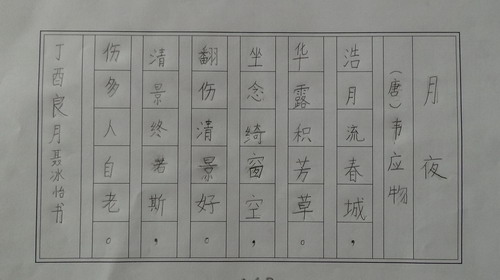 月夜
（唐）韦应物
浩月流春城，
华露积芳草。
坐念绮窗空，
翻伤清景好。
清景终若斯，
伤多人自老。
丁酉良月聂冰怡书